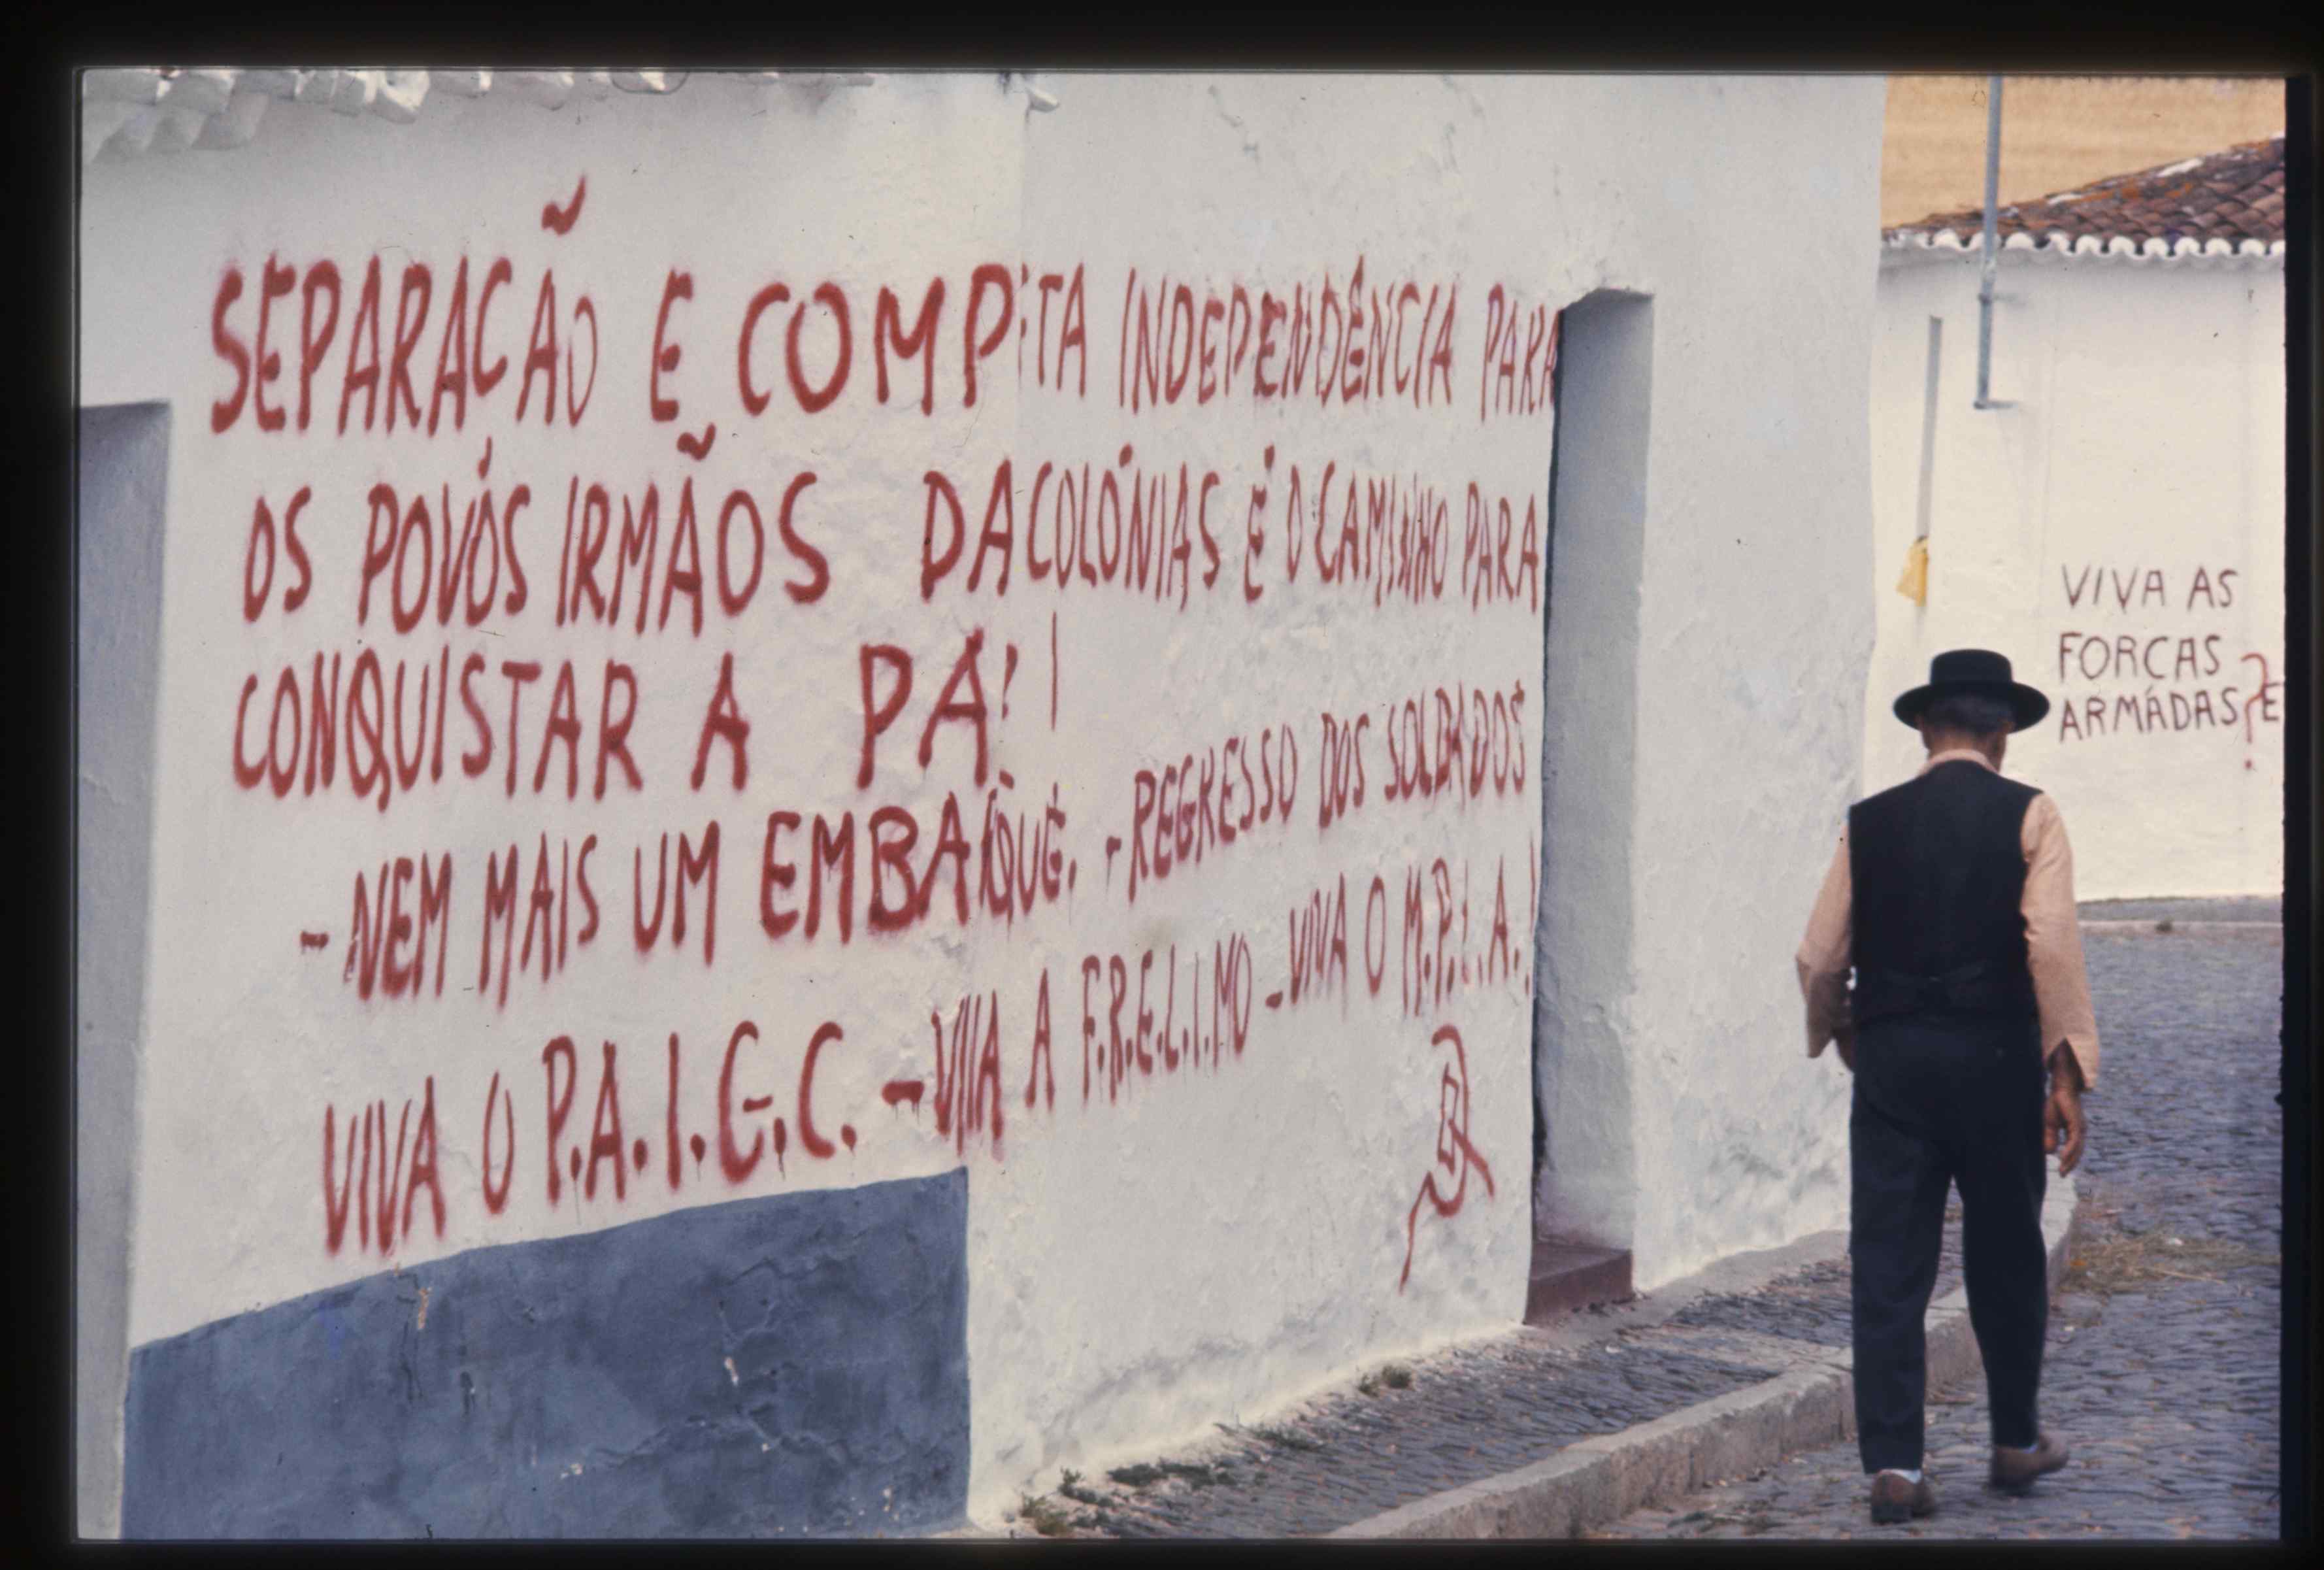 SEPARAÇÃO E COMP ETA INDEPENDÊNCIA PARA
OS POVÓS IRMÃOS DA COLÓNIAS É O CAMINHO PARA
CONQUISTAR A PA !
-NEM MAIS UM EMBARQUE. -REGRESSO DOS SOLDADOS
VIVA O P.A.I.G.C. -VIVA A F.R.E.L.I.MO -VIVA O M.P.L.A.!
VIVA AS
FORCAS
ARMÁDAS ? E